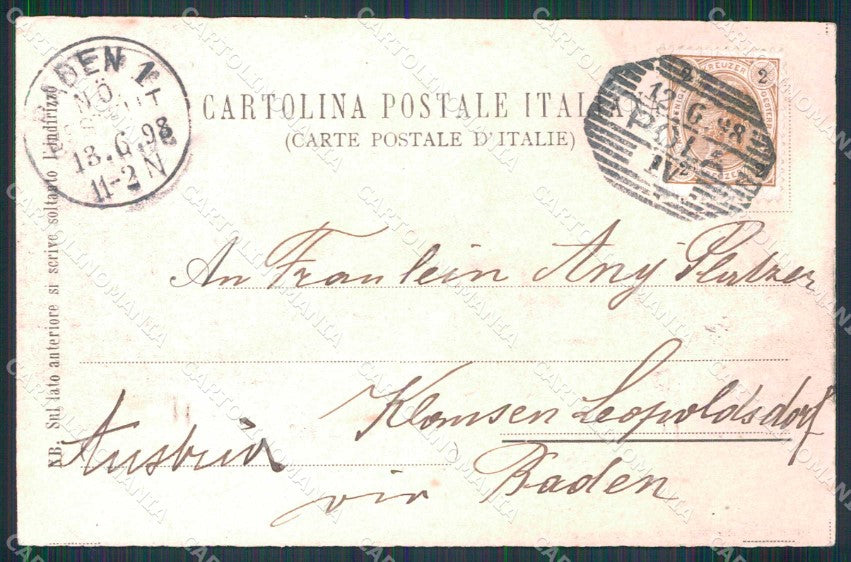 BADEN 1
N.Ö.
13.6.98
11-2 N
CARTOLINA POSTALE ITALIANA
(CARTE POSTALE D'ITALIE)
2 KREUZER 2
12 6 98
POLA
NB. Sul lato anteriore si scrive soltanto l'indirizzo
An Fraulein Any Platzer
Klamsen Leopoldsdorf
Austria
via Baden
CARTOLINOMANIA